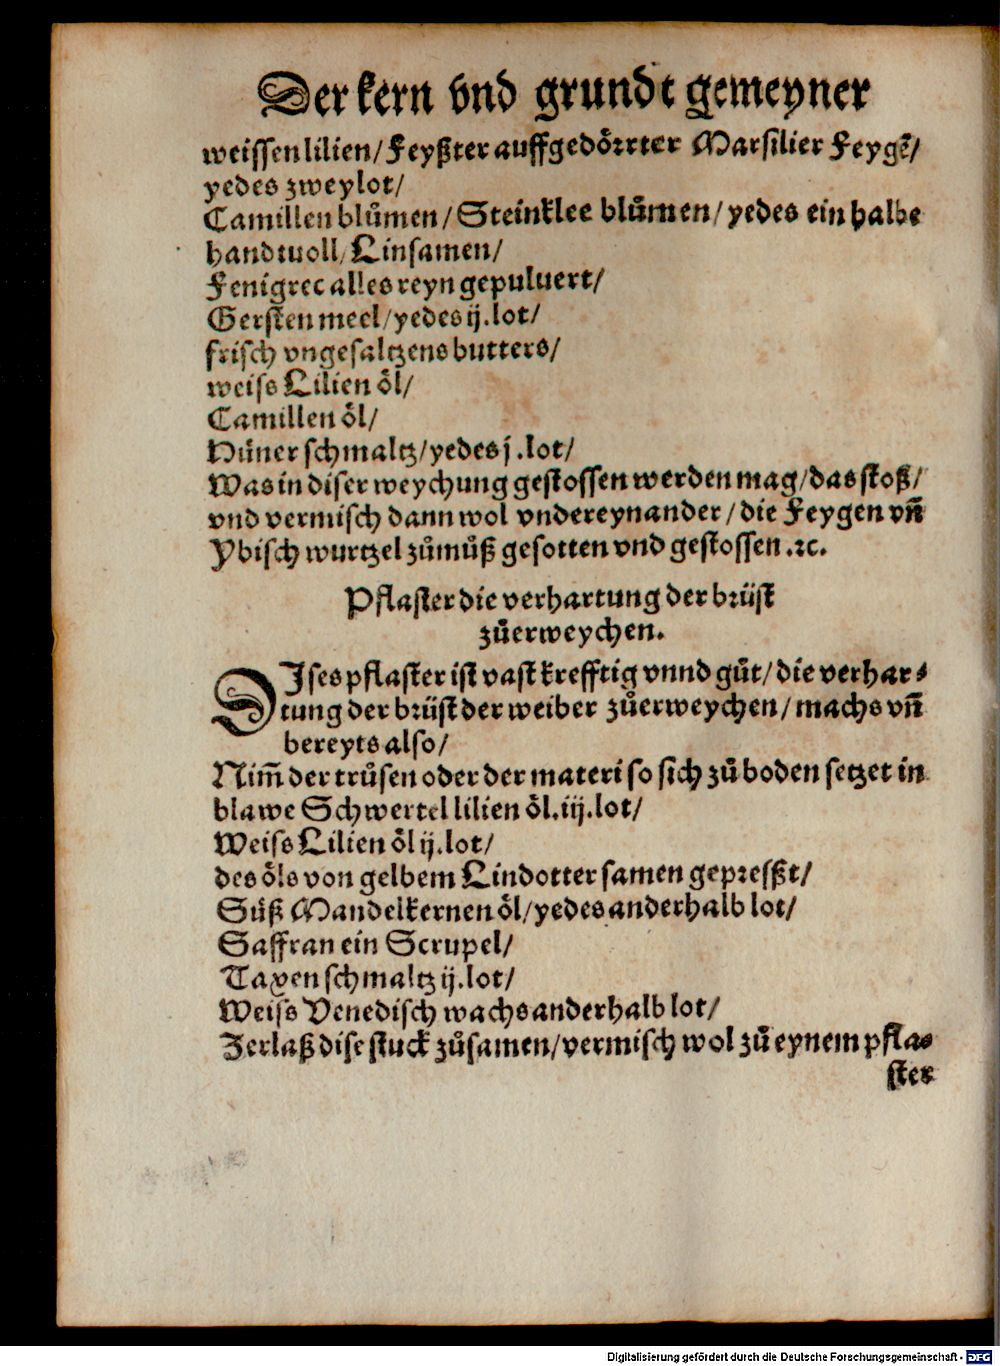 Der kern vnd grundt gemeyner
weissen lilien/ Feyßter auffgedoͤrrter Marsilier Feygẽ/
yedes zwey lot/
Camillen bluͦmen/ Steinklee bluͦmen/ yedes ein halbe
handtuoll/ Linsamen/
Fenigrec alles reyn gepuluert/
Gersten meel/ yedes ij. lot/
frisch vngesaltzens butters/
weiss Lilien oͤl/
Camillen oͤl/
Huͤner schmaltz/ yedes j. lot/
Was in diser weychung gestossen werden mag/ das stoß/
vnd vermisch dann wol vndereynander/ die Feygen vñ
Ybisch wurtzel zuͦmuͦß gesotten vnd gestossen. ꝛc.
Pflaster die verhartung der bruͤst
zuͦerweychen.
DIses pflaster ist vast krefftig vnnd guͦt/ die verhar⸗
tung der bruͤst der weiber zuͦerweychen/ machs vñ
bereyts also/
Nim̃ der truͦsen oder der materi so sich zuͦ boden setzet in
blawe Schwertel lilien oͤl. iij. lot/
Weiss Lilien oͤl ij. lot/
des oͤls von gelbem Lindotter samen gepresßt/
Suͤß Mandelkernen oͤl/ yedes anderhalb lot/
Saffran ein Scrupel/
Taxen schmaltz ij. lot/
Weiss Venedisch wachs anderhalb lot/
Zerlaß dise stuck zuͦsamen/ vermisch wol zuͦ eynem pfla⸗
ster
Digitalisierung gefördert durch die Deutsche Forschungsgemeinschaft - DFG